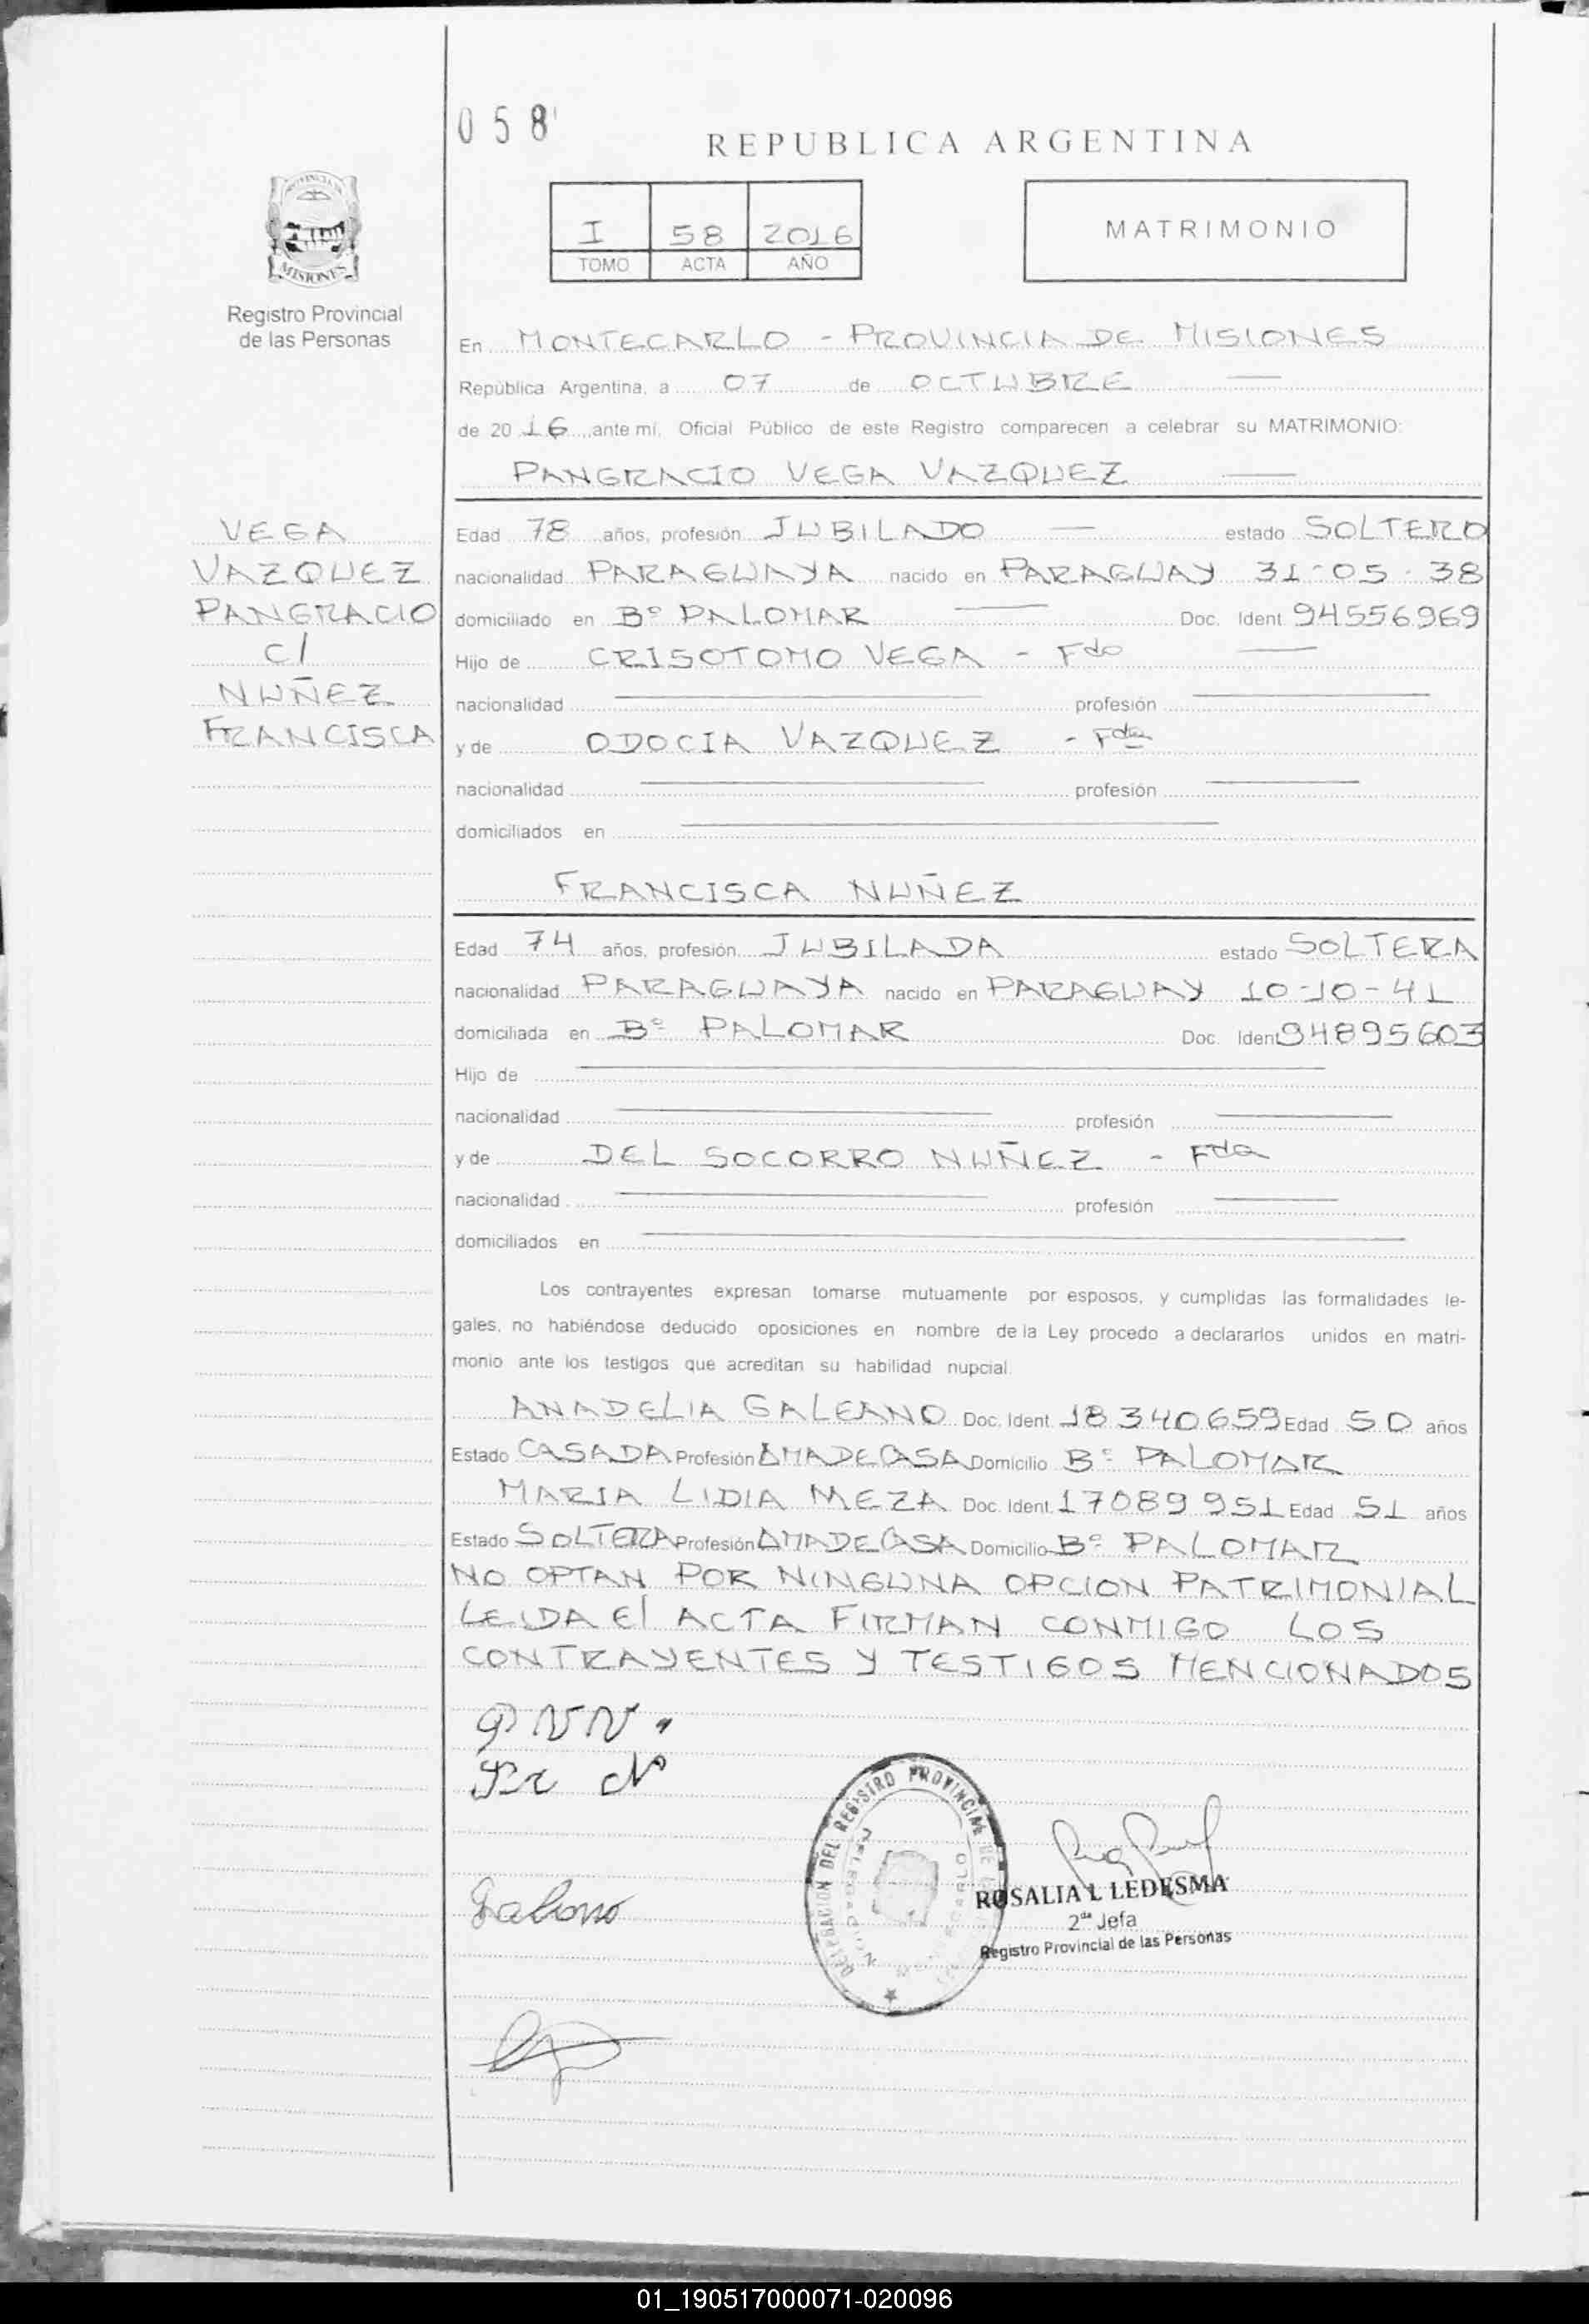 058
REPUBLICA ARGENTINA
PROVINCIA DE
MISIONES
Registro Provincial
de las Personas
I 58 2016
TOMO ACTA AÑO
MATRIMONIO
En MONTECARLO - PROVINCIA DE MISIONES
República Argentina, a 07 de OCTUBRE
de 2016, ante mí, Oficial Público de este Registro comparecen a celebrar su MATRIMONIO:
PANGRACIO VEGA VAZQUEZ
VEGA
VAZQUEZ
PANGRACIO
C/
NUÑEZ
FRANCISCA
Edad 78 años, profesión JUBILADO estado SOLTERO
nacionalidad PARAGUAYA nacido en PARAGUAY 31-05-38
domiciliado en Bº PALOMAR Doc. Ident 94556969
Hijo de CRISOTOMO VEGA - Fdo
nacionalidad profesión
y de ODOCIA VAZQUEZ - Fda
nacionalidad profesión
domiciliados en
FRANCISCA NUÑEZ
Edad 74 años, profesión JUBILADA estado SOLTERA
nacionalidad PARAGUAYA nacido en PARAGUAY 10-10-41
domiciliada en Bº PALOMAR Doc. Ident 94895603
Hijo de
nacionalidad profesión
y de DEL SOCORRO NUÑEZ - Fda
nacionalidad profesión
domiciliados en
Los contrayentes expresan tomarse mutuamente por esposos, y cumplidas las formalidades le-
gales, no habiéndose deducido oposiciones en nombre de la Ley procedo a declararlos unidos en matri-
monio ante los testigos que acreditan su habilidad nupcial.
ANADELIA GALEANO Doc. Ident. 18340659 Edad 50 años
Estado CASADA Profesión AMADECASA Domicilio Bº PALOMAR
MARIA LIDIA MEZA Doc. Ident. 17089951 Edad 51 años
Estado SOLTERA Profesión AMADECASA Domicilio Bº PALOMAR
NO OPTAN POR NINGUNA OPCION PATRIMONIAL
LEIDA El ACTA FIRMAN CONMIGO LOS
CONTRAYENTES Y TESTIGOS MENCIONADOS
DELEGACION DEL REGISTRO PROVINCIAL DE
ROSALIA L LEDESMA
2da Jefa
Registro Provincial de las Personas
01_190517000071-020096